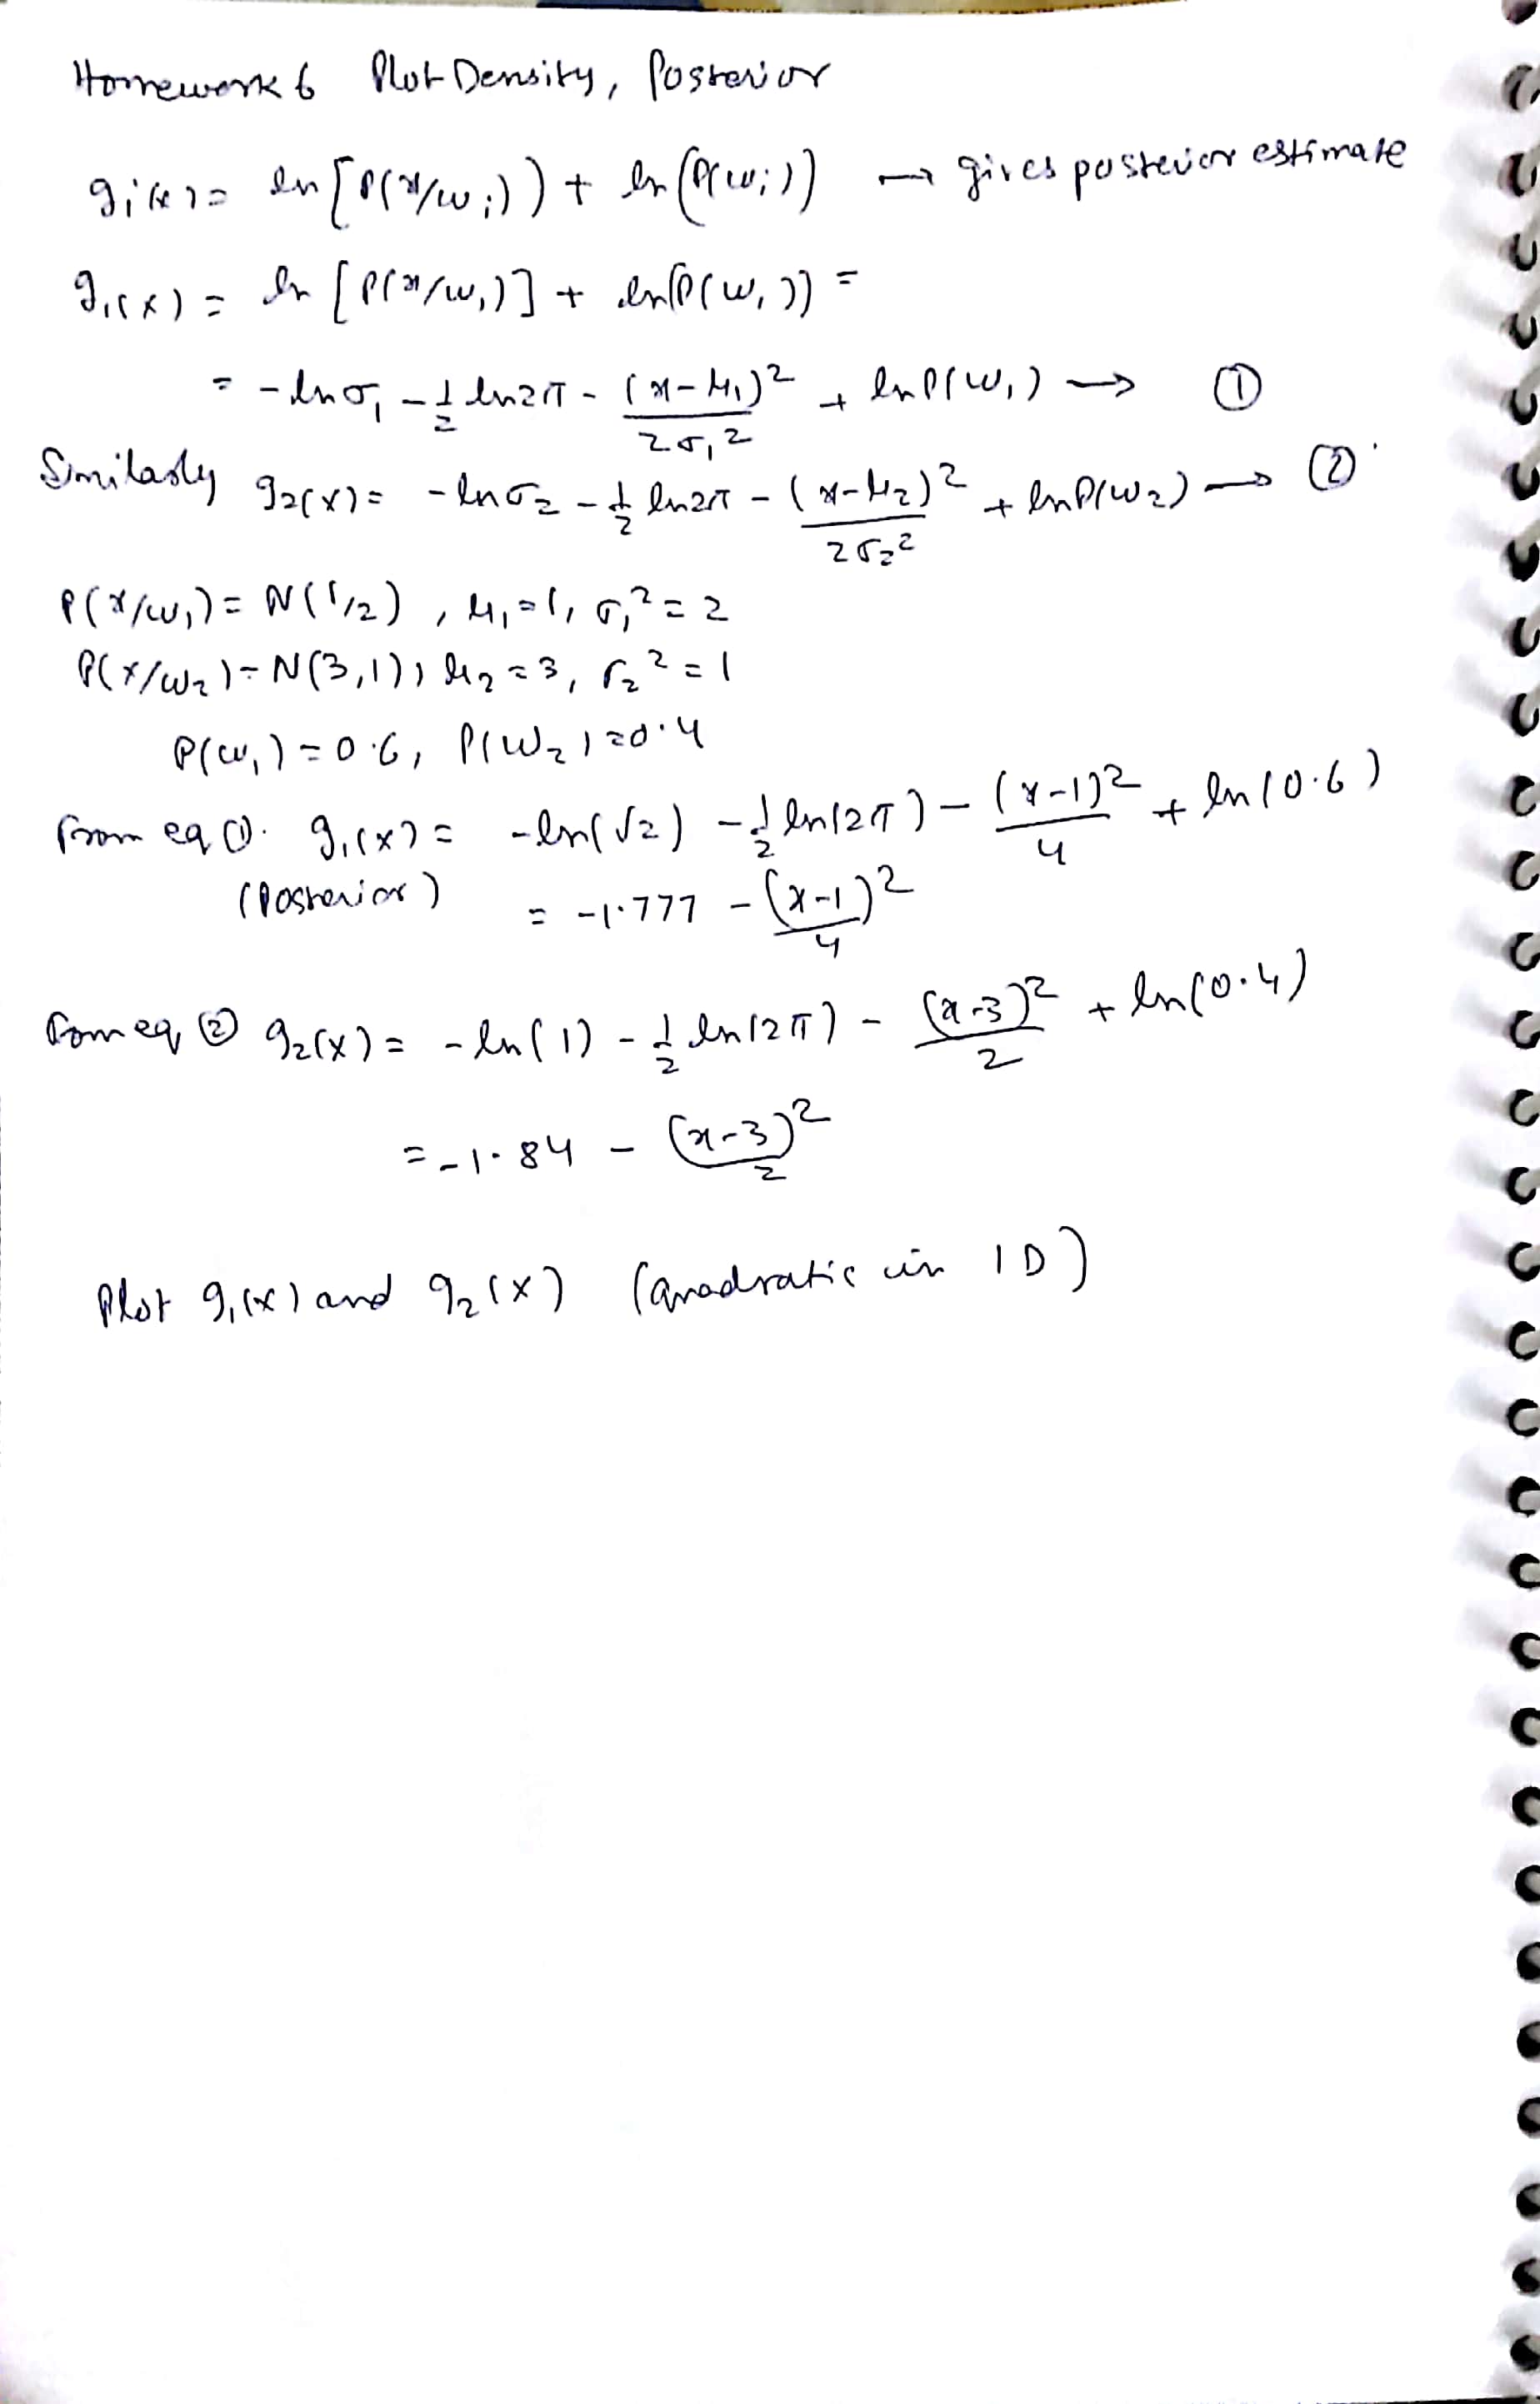 Homework 6 Plot Density, Posterior
gi(x) = ln[P(x/wi)) + ln(P(wi)) → gives posterior estimate
g1(x) = ln [P(x/w1)] + ln(P(w1)) =
= -lnσ1 - 1/2 ln2π - (x-μ1)²/2σ1² + lnP(w1) → ①
Similarly g2(x) = -lnσ2 - 1/2 ln2π - (x-μ2)²/2σ2² + lnP(w2) → ②
P(x/w1) = N(1,2), μ1=1, σ1²=2
P(x/w2) = N(3,1), μ2=3, σ2²=1
P(w1)=0.6, P(w2)=0.4
From eq ①. g1(x) = -ln(√2) - 1/2 ln(2π) - (x-1)²/4 + ln(0.6)
(Posterior) = -1.777 - (x-1)²/4
From eq ② g2(x) = -ln(1) - 1/2 ln(2π) - (x-3)²/2 + ln(0.4)
= -1.84 - (x-3)²/2
Plot g1(x) and g2(x) (Quadratic in 1D)